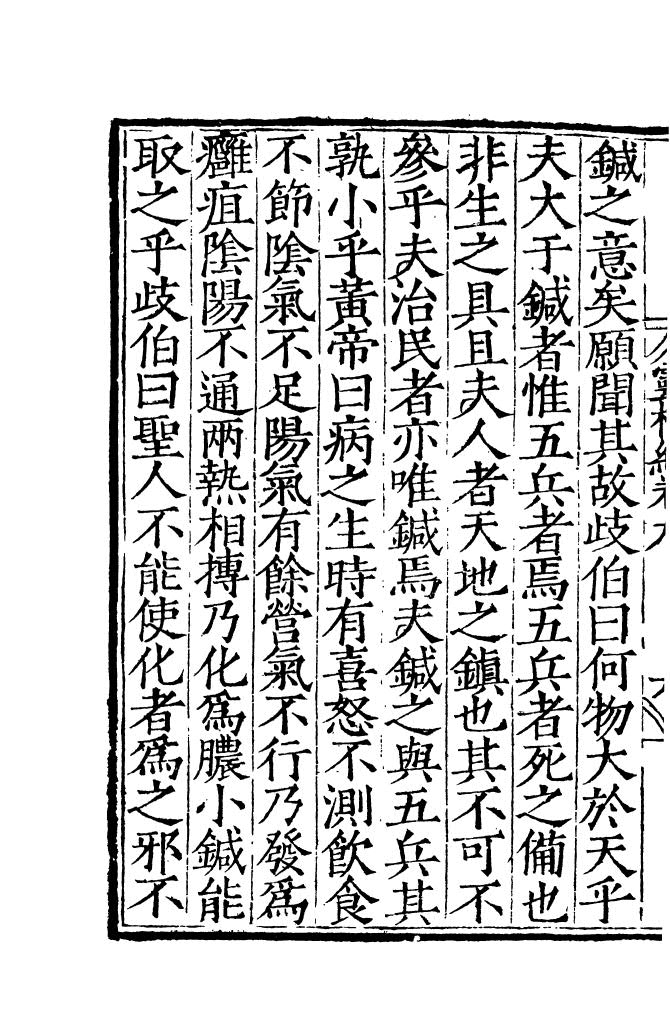 鍼之意矣願聞其故歧伯曰何物大於天乎
夫大于鍼者惟五兵者焉五兵者死之備也
非生之具且夫人者天地之鎮也其不可不
參乎夫治民者亦唯鍼焉夫鍼之與五兵其
孰小乎黃帝曰病之生時有喜怒不測飲食
不節陰氣不足陽氣有餘營氣不行乃發爲
癰疽陰陽不通兩熱相搏乃化爲膿小鍼能
取之乎歧伯曰聖人不能使化者爲之邪不